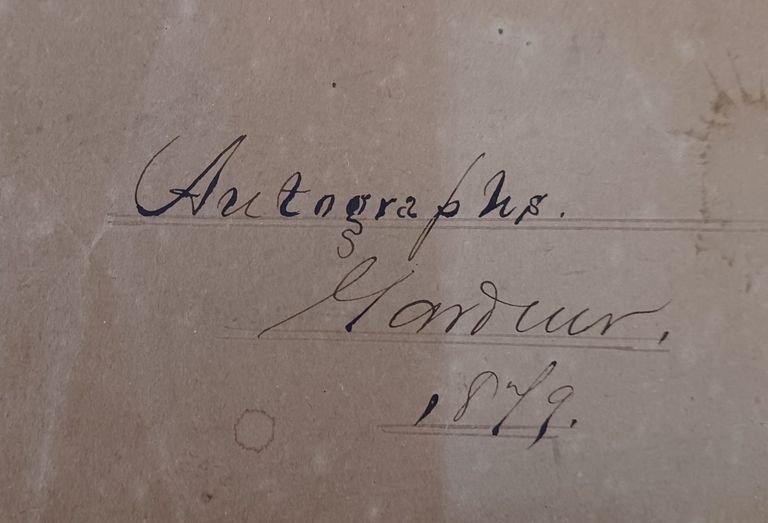 Autographs.
Gardiner.
1879.